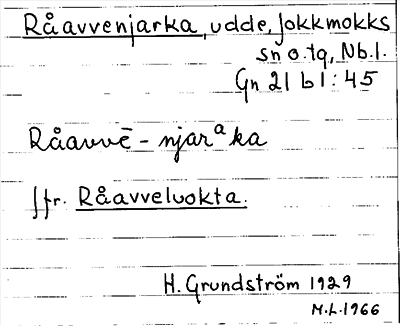 Råavvenjarka, udde, Jokkmokks
sn o. tg, Nb. l.
Gn 21 b 1 : 45
Råavvē - njarᵃka
Jfr. Råavveluokta.
H. Grundström 1929
M.L. 1966